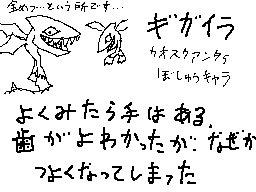 金めっ…という所です…
ギガイラ
カオスクアンタイ
ぼしゅうキャラ
よくみたら手はある。
歯がよわかったが、なぜか
つよくなってしまった